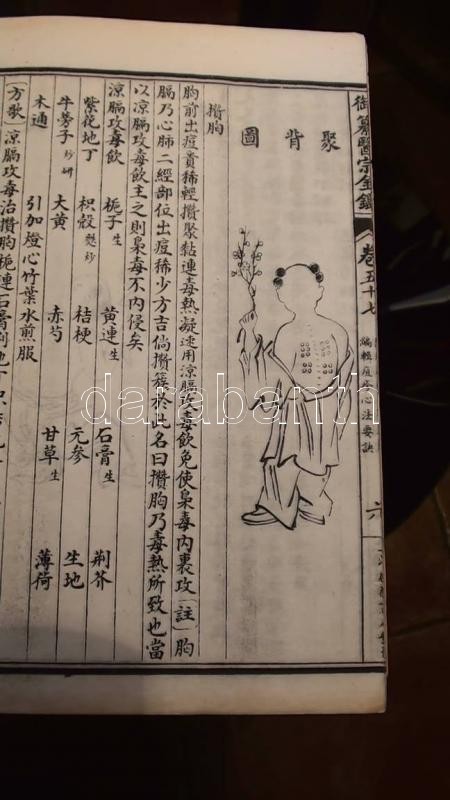 御纂醫宗金鑑 卷五十七 編輯痘疹心法要訣 六
聚背圖
攢胸
胸前出痘貴稀輕攢聚黏連毒熱凝速用涼膈攻毒飲免使梟毒內裏攻〔註〕胸
膈乃心肺二經部位出痘稀少方吉倘攢簇於此名曰攢胸乃毒熱所致也當
以涼膈攻毒飲主之則梟毒不內侵矣
涼膈攻毒飲
梔子生 黃連生 石膏生 荊芥
紫花地丁 枳殼麩炒 桔梗 元參 生地
牛蒡子炒研 大黃 赤芍 甘草生 薄荷
木通
引加燈心竹葉水煎服
〔方歌〕涼膈攻毒治攢胸梔連石膏荊地丁
darabanth